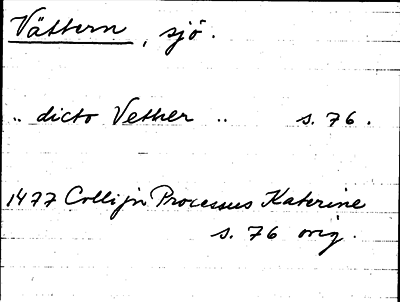 Vättern, sjö.
.. dicto Vether .. s. 76.
1477 Collijn Processus Katerine
s. 76 orig.